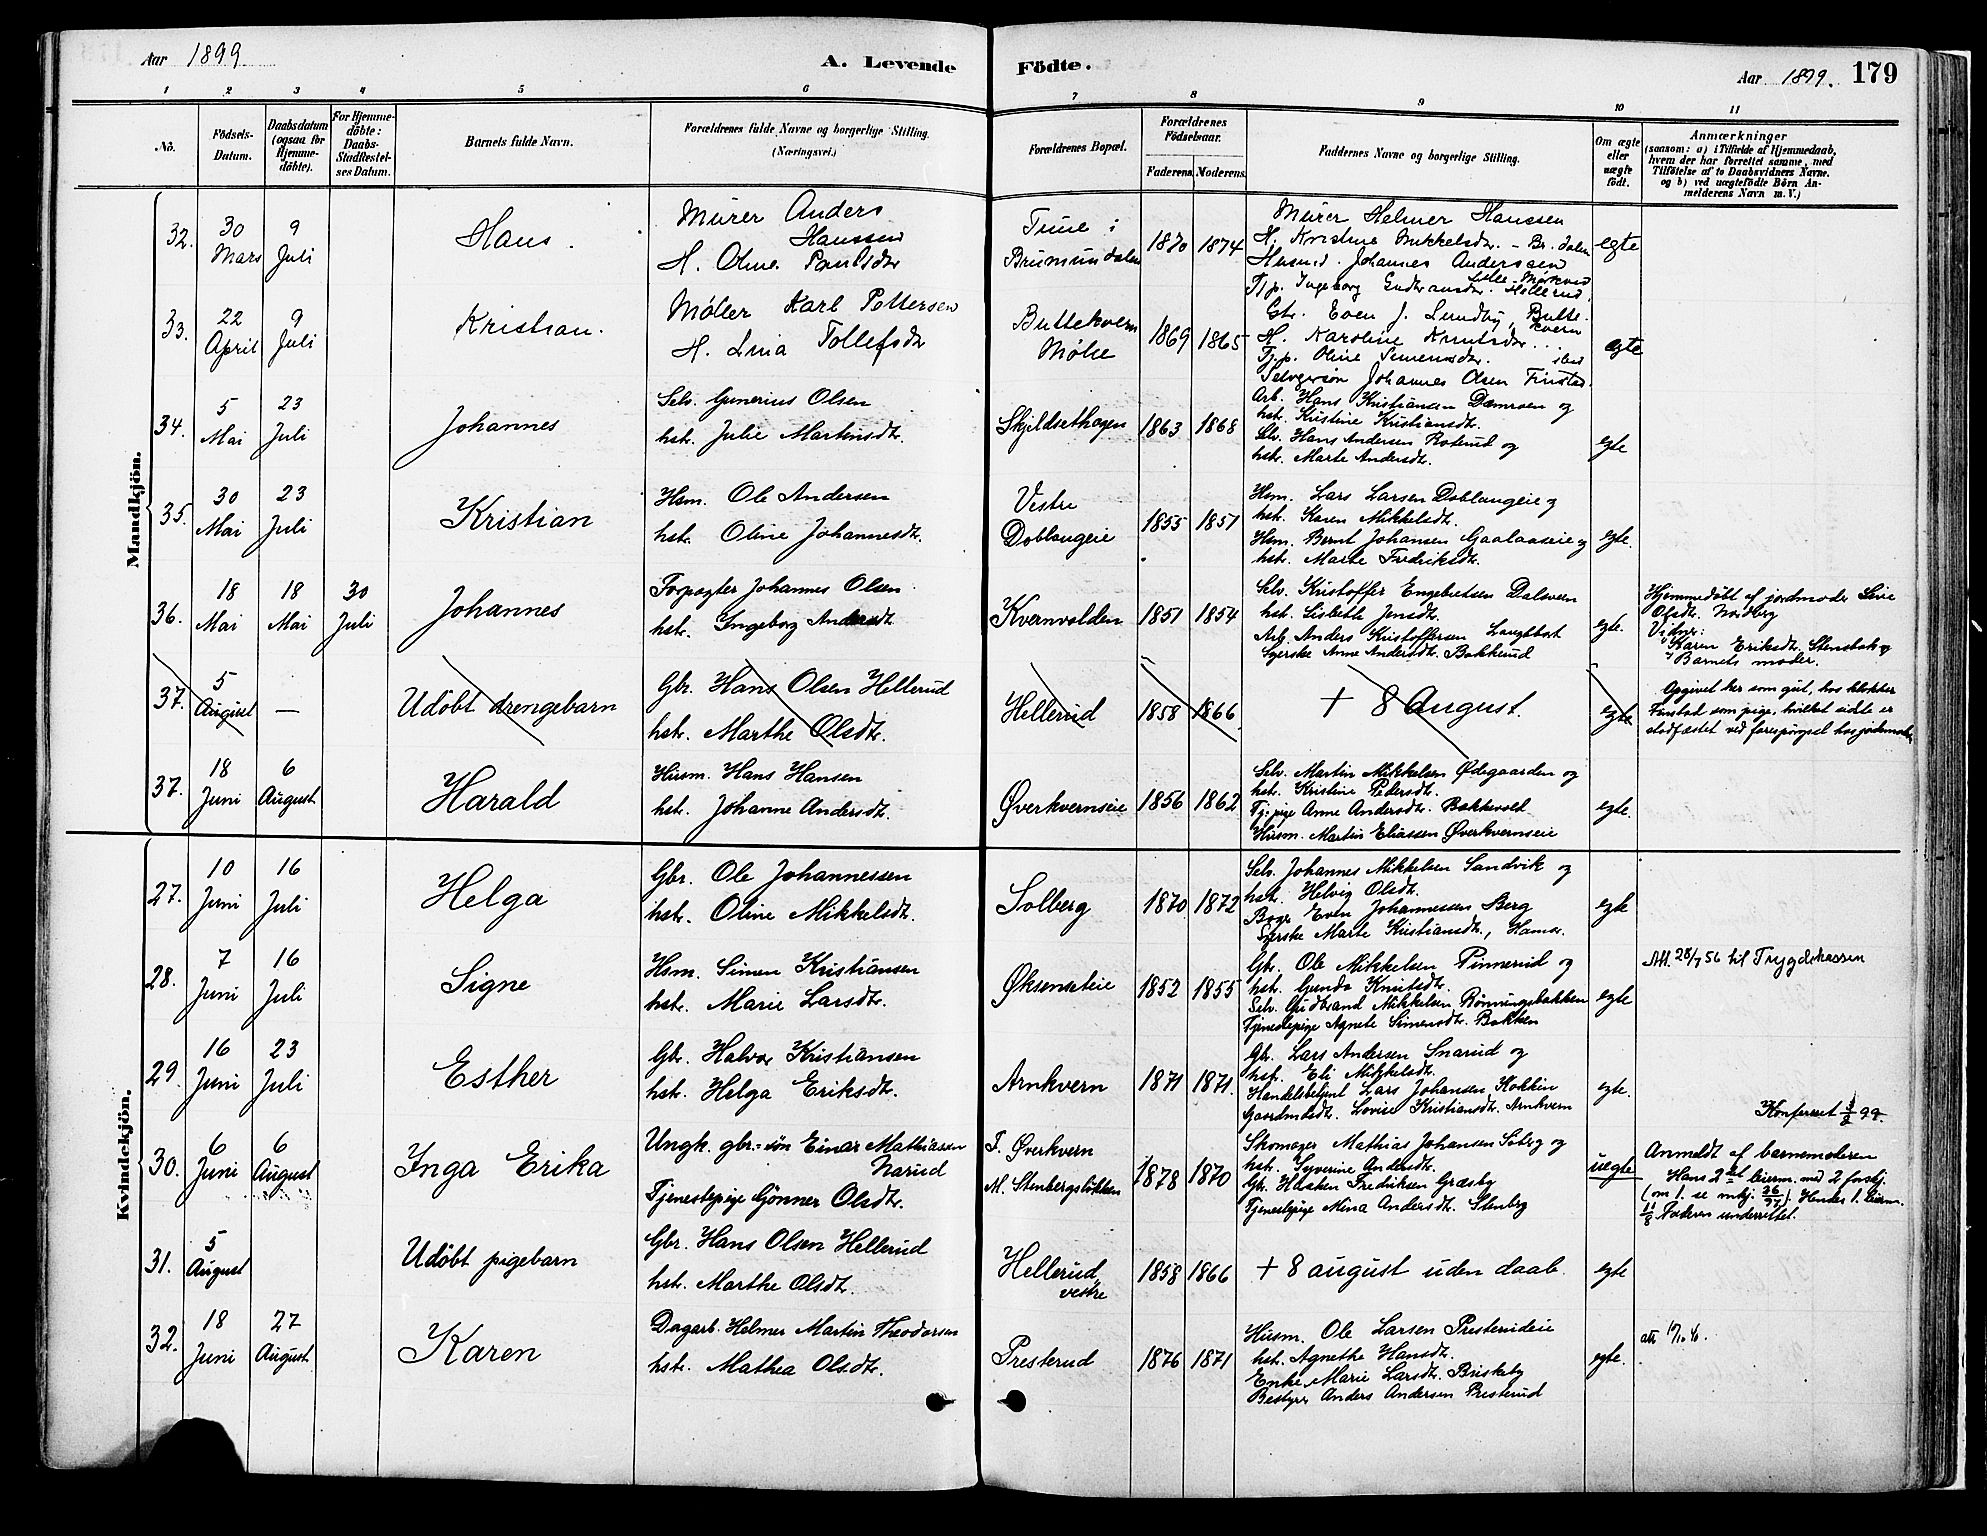 Aar 1899.
A. Levende Födte.
Aar 1899. 179
1 2 3 4 5 6 7 8 9 10 11
No.
Födsels-Datum.
Daabsdatum (ogsaa for Hjemme-döbte).
For Hjemme-döbte: Daabs-Stadfæstel-ses Datum.
Barnets fulde Navn.
Forældrenes fulde Navne og borgerlige Stilling.
(Næringsvei.)
Forældrenes Bopæl.
Forældrenes Födselsaar.
Faderens. Moderens.
Faddernes Navne og borgerlige Stilling.
Om ægte eller uægte födt.
Anmærkninger
(saasom: a) i Tilfælde af Hjemmedaab, hvem der har forrettet samme, med Tilföielse af to Daabsvidners Navne. og b) ved uægtefödte Börn An-melderens Navn m. V.)
Mandkjön.
32. 30 Mars 9 Juli Hans.
Murer Anders Hanssen
H. Oline Paulsdtr
Tune i Brumundalen 1870 1874
Murer Helmer Hanssen
H. Kristine Mikkelsdtr. - Br. dalen
Husmd. Johannes Anderssen
Lille Mørkved
Tjp. Ingeborg Gudbransdtr. Hellerud.
egte
33. 22 April 9 Juli Kristian.
Møller Karl Pettersen
H. Lina Tollefsdtr
Buttekvern Mølle 1869 1865
Gbr. Even J. Lundby, Butte-kvern
H. Karoline Knutsdtr...
Tjp. Oline Simensdtr. ibid
Selvgersøn Johannes Olsen Finstad.
egte
34. 5 Mai 23 Juli Johannes
Selv. Gunerius Olsen
hst. Julie Martinsdtr.
Skjeldsethagen 1863 1868
Arb. Hans Kristiansen Dæmroen og
hst. Kristine Kristiansdtr.
Selv. Hans Andersen Roterud og
hst. Marte Andersdtr.
egte
35. 30 Mai 23 Juli Kristian
Hsm. Ole Andersen
hst. Oline Johannesdtr.
Vestre Doblaugeie 1855 1851
Hsm. Lars Larsen Doblaugeie og
hst. Karen Mikkelsdtr.
Hsm. Bernt Johansen Gaalaaseie og
hst. Marte Fredriksdtr.
egte.
36. 18 Mai 18 Mai 30 Juli Johannes
Forpagter Johannes Olsen
hst. Ingeborg Andersdt
Kvernvolden 1851 1854
Selv. Kristoffer Engebretsen Dalsveen
hst. Lisbeth Jensdtr.
Arb. Anders Kristoffersen
Syerske Anne Andersdtr. Bakkerud
egte.
Hjemmedøbt af jordmoder Sine
Olsdtr. Nordberg
Vidner:
Karen Eriksdtr. Stensbak og
Barnets moder.
37. 5 August — Udöbt drengebarn
Gbr. Hans Olsen Hellerud
hst. Marthe Olsdtr.
Hellerud 1858 1866
+ 8 August.
egte
Opgivet her som gut, hos klokker
Finstad som pige, hvilket sidste er
stadfæstet ved forespörgsel hos jordmoder
37. 18 Juni 6 August Harald
Husm. Hans Hansen
hst. Johanne Andersdtr.
Øverkvernseie 1856 1862
Selv. Martin Mikkelsen Ødegaarden og
hst. Kristine Pedersdtr.
Tj.pige Anne Andersdtr. Bakkevold
Husm. Martin Eliassen Øverkvernseie
egte.
Kvindekjön.
27. 10 Juni 16 Juli Helga
Gbr. Ole Johannessen
hst. Oline Mikkelsdtr.
Solberg 1870 1872
Selv. Johannes Mikkelsen Sandvik og
hst. Helvig Olsdtr.
Bager Even Johannessen Berg
Syerske Marte Kristiansdtr., Hamar.
egte
28. 7 Juni 16 Juli Signe
Hsm. Simen Kristiansen
hst. Marie Larsdtr.
Øksenseteie 1852 1855
Gbr. Ole Mikkelsen Pinnerud og
hst. Gunda Knutsdtr.
Selv. Gudbrand Mikkelsen Rönningsbakken
Tjenestepige Agnete Simensdtr. Bakken
egte
Att. 28/7 56 til Trygdekassen
29. 16 Juni 23 Juli Esther
Gbr. Halvor Kristiansen
hst. Helga Eriksdtr.
Arnkvern 1871 1871.
Gbr. Lars Andersen Snarud og
hst. Eli Mikkelsdtr.
Handelsbetjent Lars Johansen Kokkin
Gaardmdsdtr. Lovise Kristiansdtr. Arnkvern
egte.
Konfereret 99.
30. 6 Juni 6 August Inga Erika
Ungk. gbr.-søn Einar Mathiassen Narud
Tjenestepige Gönner Olsdtr.
F. Øverkvern
M. Stenbergsløkken 1878 1870
Skomager Mathias Johansen Soberg og
hst. Syverine Andersdtr.
Gbr. Haaken Fredriksen Græsby
Tjenestepige Mina Andersdtr. Stenberg
uegte
Anmeldt af barnemoderen
Hans 2det leierm. med 2 forskj.
(om 1. se mkj. 26/97). Hendes 1. leierm.
11/8 Faderen underrettet.
31. 5 August Udöbt pigebarn
Gbr. Hans Olsen Hellerud
hst. Marthe Olsdtr.
Hellerud, vestre 1858 1866
+ 8 august uden daab.
egte
32. 18 Juni 27 August Karen
Dagarb. Helmer Martin Theodorsen
hst. Mathea Olsdtr.
Presterud 1876 1871
Husm. Ole Larsen Presterudeie
hst. Agnethe Hansdtr.
Enke Marie Larsdtr. Briskeby
Bestyrer Anders Andersen Presterud
egte.
att